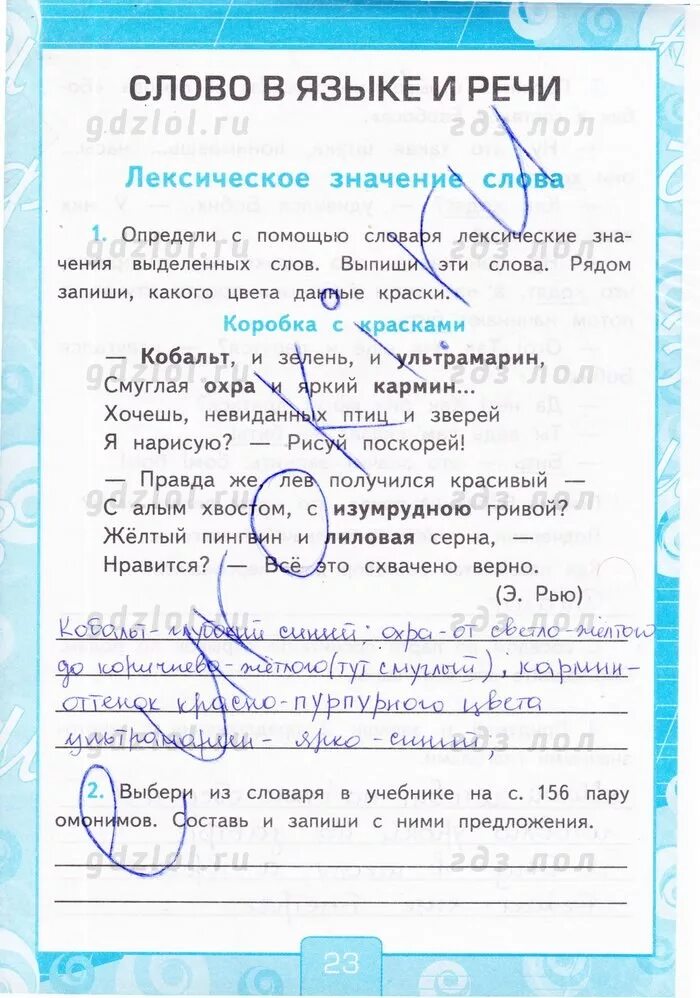 СЛОВО В ЯЗЫКЕ И РЕЧИ
gdzlol.ru гдз лол
Лексическое значение слова
1. Определи с помощью словаря лексические зна-
чения выделенных слов. Выпиши эти слова. Рядом
gdzlol.ru гдз лол
запиши, какого цвета данные краски.
Коробка с красками
— Кобальт, и зелень, и ультрамарин,
gdzlol.ru гдз лол
Смуглая охра и яркий кармин...
Хочешь, невиданных птиц и зверей
Я нарисую? — Рисуй поскорей!
— Правда же, лев получился красивый —
gdzlol.ru гдз лол
С алым хвостом, с изумрудною гривой?
Жёлтый пингвин и лиловая серна, —
Нравится? — Всё это схвачено верно.
(Э. Рью)
gdzlol.ru гдз лол
Кобальт-глубокий синий; охра-от светло-жёлтого
до коричнево-жёлтого(тут смуглый), кармин-
оттенок красно-пурпурного цвета
gdzlol.ru гдз лол
ультрамарин- ярко-синий,
2. Выбери из словаря в учебнике на с. 156 пару
омонимов. Составь и запиши с ними предложения.
gdzlol.ru гдз лол
23